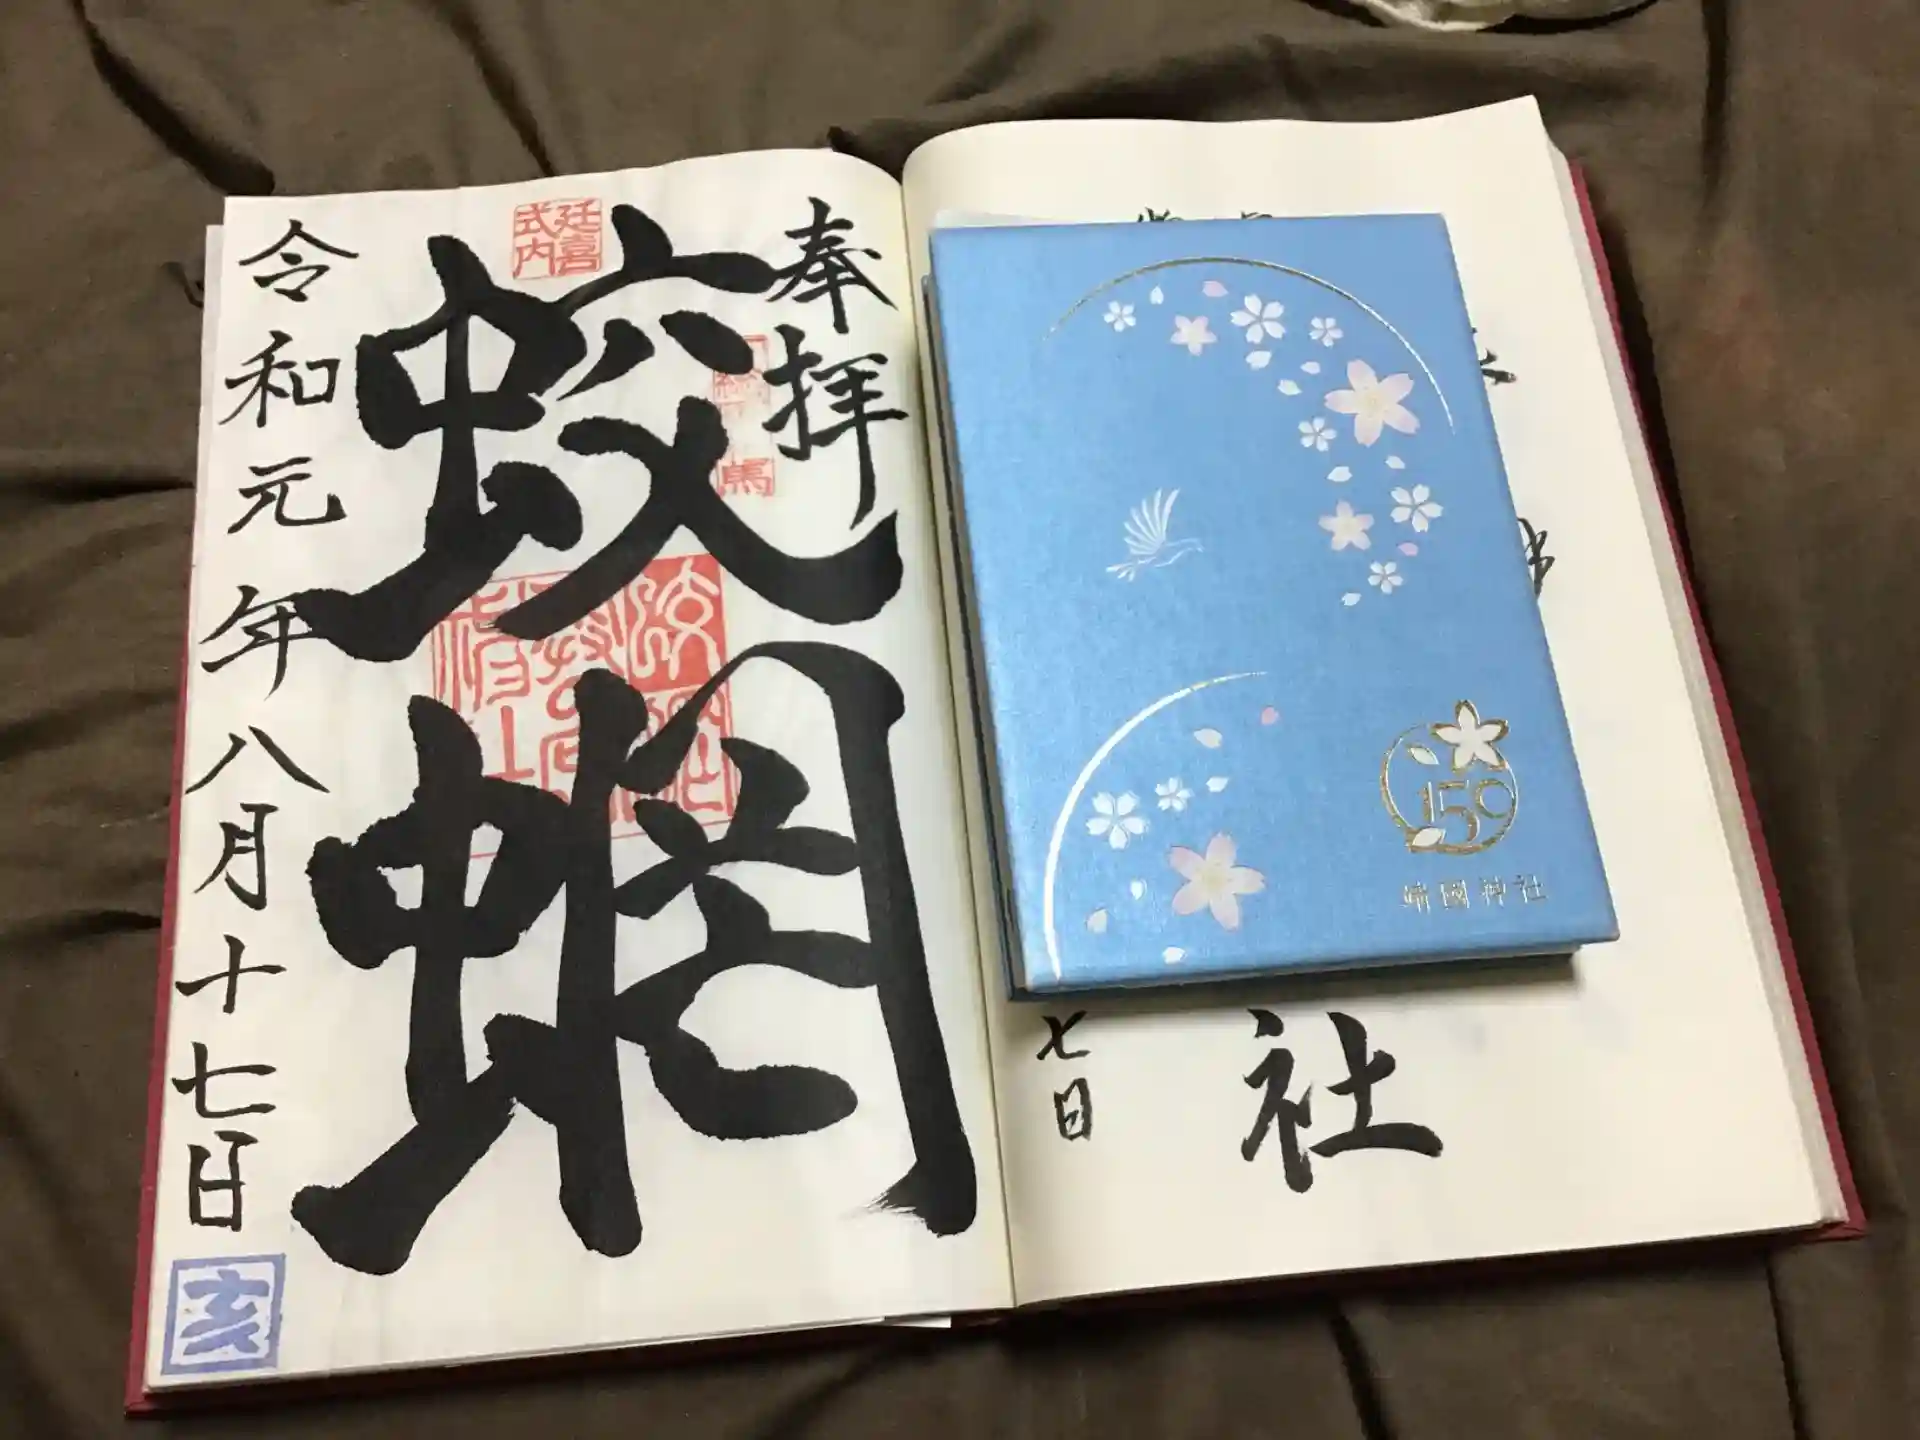 奉拝
延喜
式内
蛟蝄
令和元年八月十七日
亥
社
七日
150
靖國神社